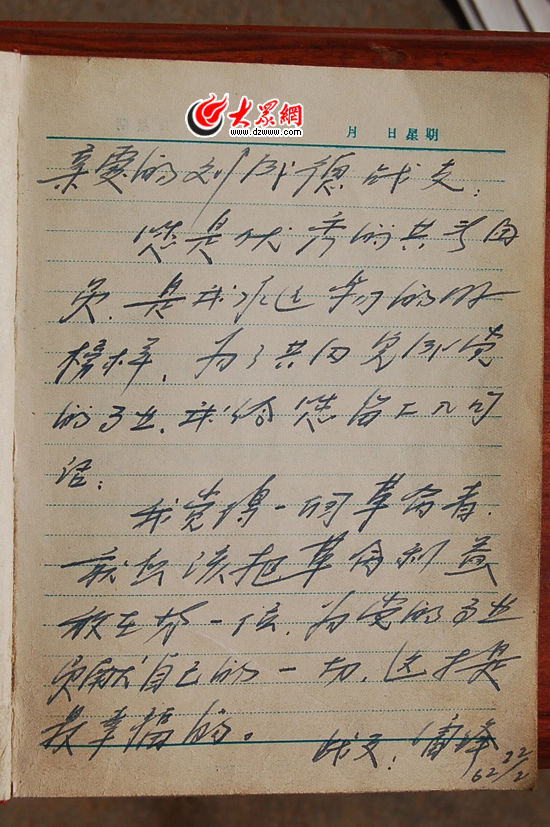 大眾網
www.dzwww.com
月 日 星期
亲爱的刘成德战友：
您是优秀的共青团
员，是我永远学习的好
榜样，为了共同完成党
的事业，我给您留上几句
话：
我觉得一个革命者，
就应该把革命利益
放在第一位，为党的事业
贡献自己的一切，这才是
最幸福的。
战友：雷锋
62 22/2